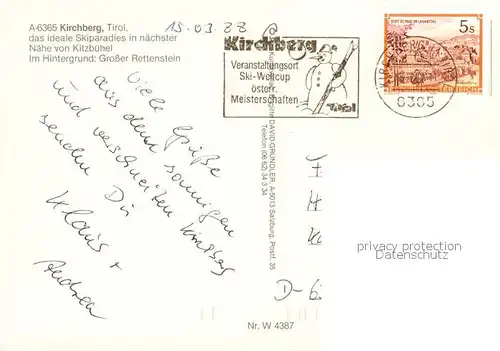 A-6365 Kirchberg, Tirol,
das ideale Skiparadies in nächster
Nähe von Kitzbühel
Im Hintergrund: Großer Rettenstein
15-03 88
Kirchberg
Veranstaltungsort
Ski-Weltcup
österr.
Meisterschaften
Tirol
5s
6365
Viele Grüße
aus dem sonnigen
und verschneiten Kirchberg
senden Dir
Klaus +
Andrea
DAVID-GRÜNDLER, A-5013 Salzburg, Postf. 35
Telefon (06 62) 34 3 34
D-6
privacy protection
Datenschutz
Nr. W 4387